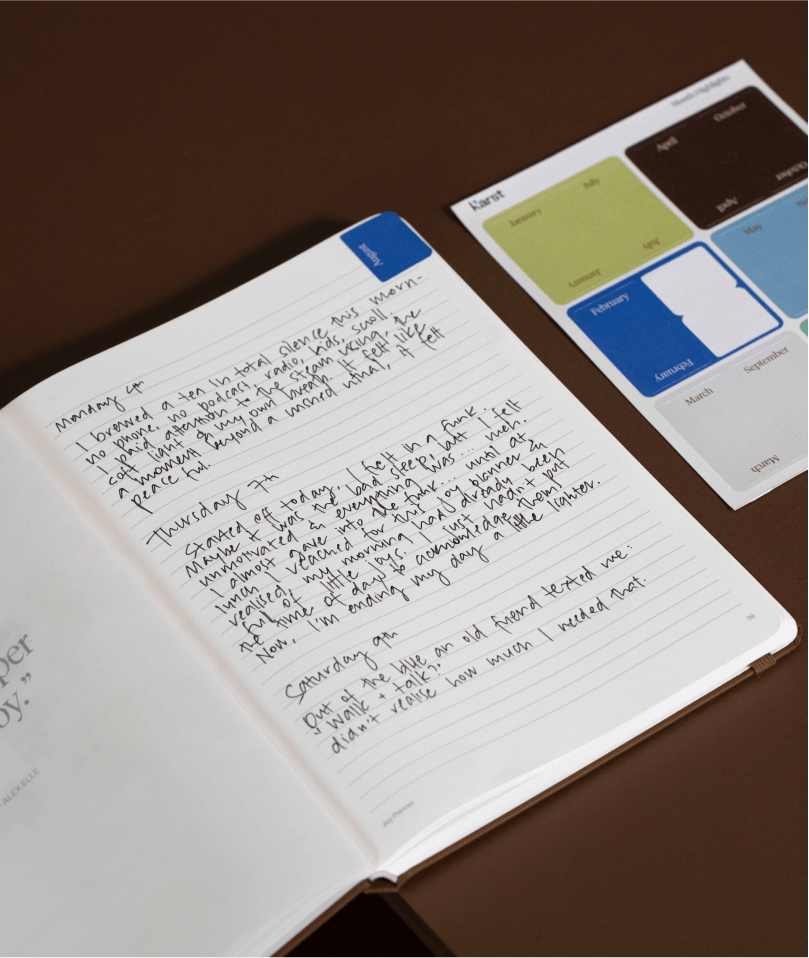 August
Monday 4th
I brewed a tea in total silence this morn-
no phone, no podcast, radio, kids, scroll.
I paid attention to the steam rising, the
soft light & my own breath. It felt like
a moment beyond a ritual, it felt
peaceful.
Thursday 7th
Started off today, I felt in a funk.
Maybe it was the bad sleep, but I felt
unmotivated & everything was... meh.
I almost gave into the funk... until at
lunch I reached for this joy planner &
realised, my morning had already been
full of little joys. I just hadn't put
the time of day to acknowledge them!
Now, I'm ending my day a little lighter.
Saturday 9th
Out of the blue an old friend texted me:
"Walk + talk?"
didn't realise how much I needed that.
Joy Planner
per
oy."
ALEX ELLE
Karst
Month Highlights
January
July
July
January
April
October
October
April
February
February
May
March
September
March